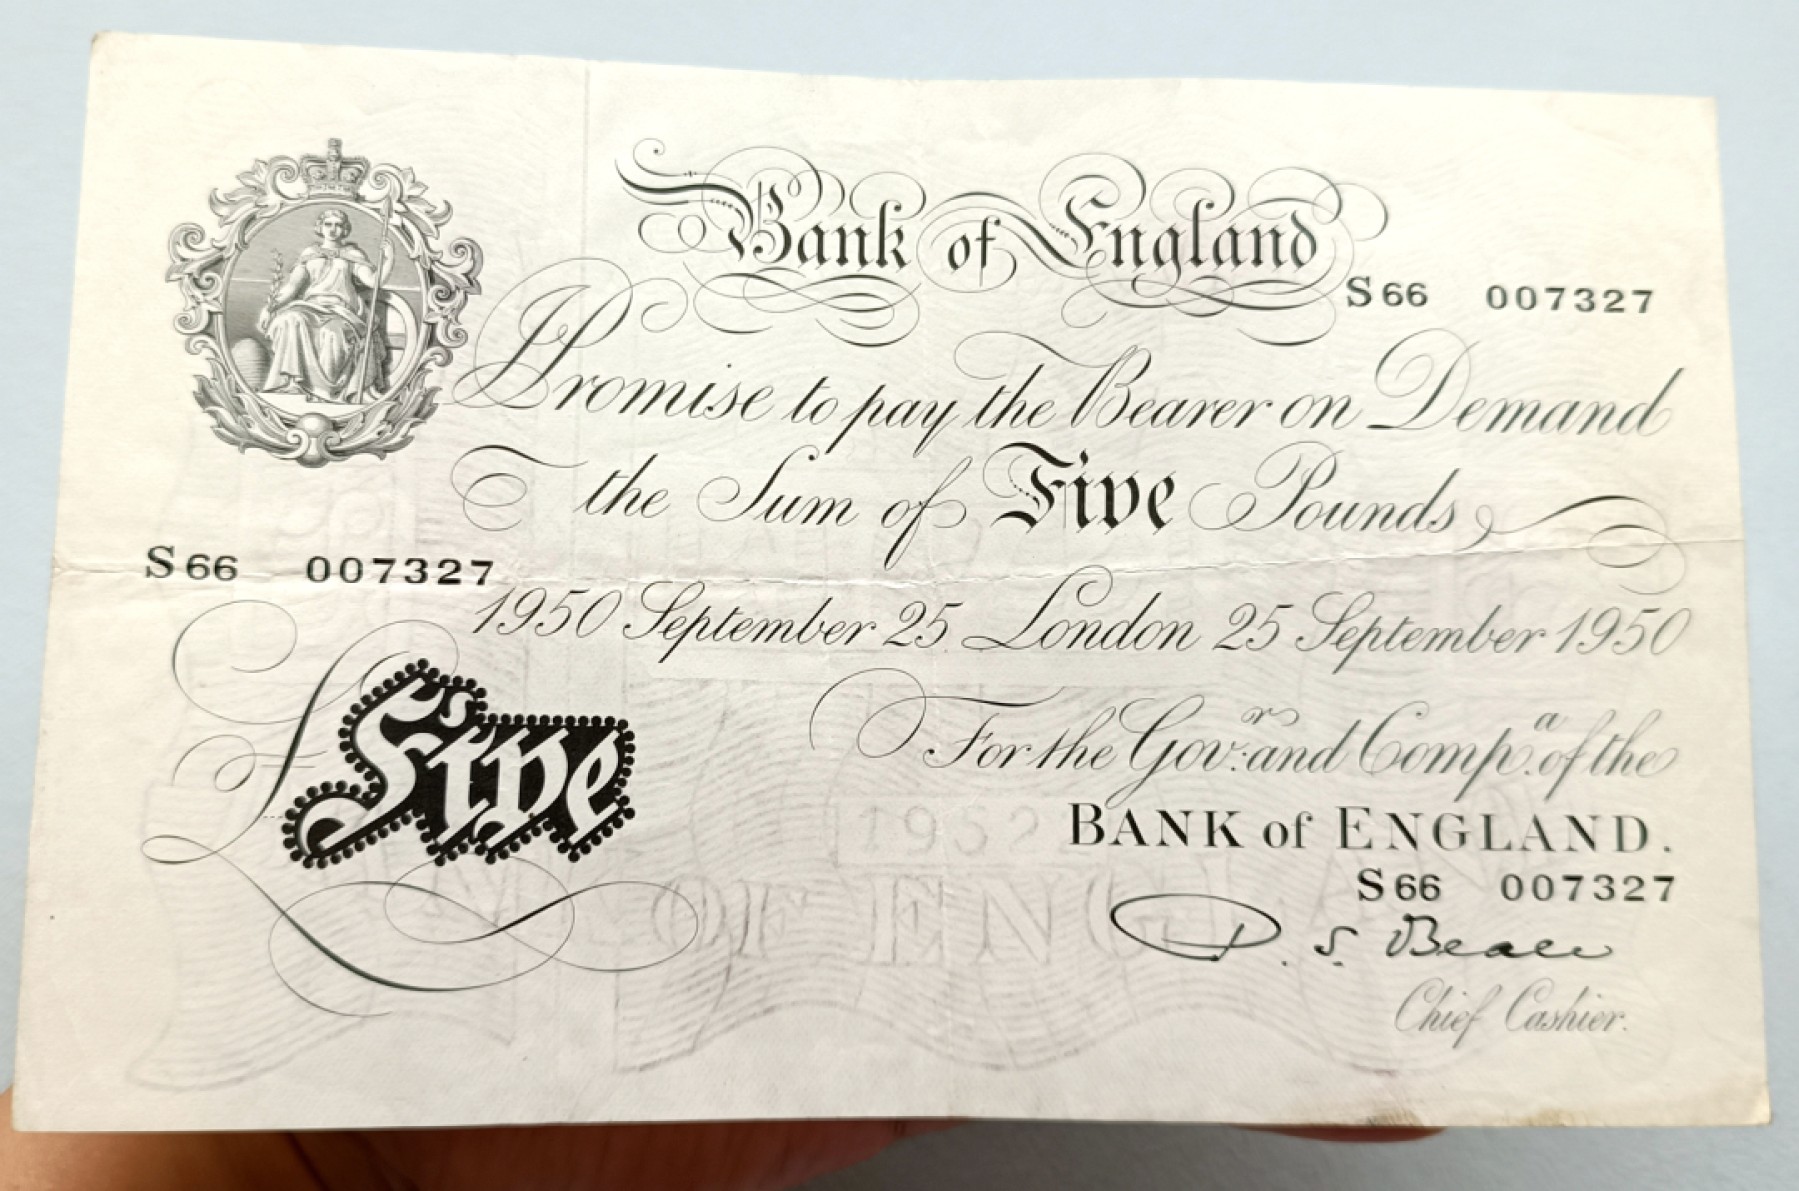 Bank of England
S 66 007327
I Promise to pay the Bearer on Demand
the Sum of Five Pounds
S 66 007327
1950 September 25. London 25 September 1950
£Five
For the Gov.r and Comp.a of the
BANK of ENGLAND.
S 66 007327
P. S. Beale
Chief Cashier.
OF ENGLAND